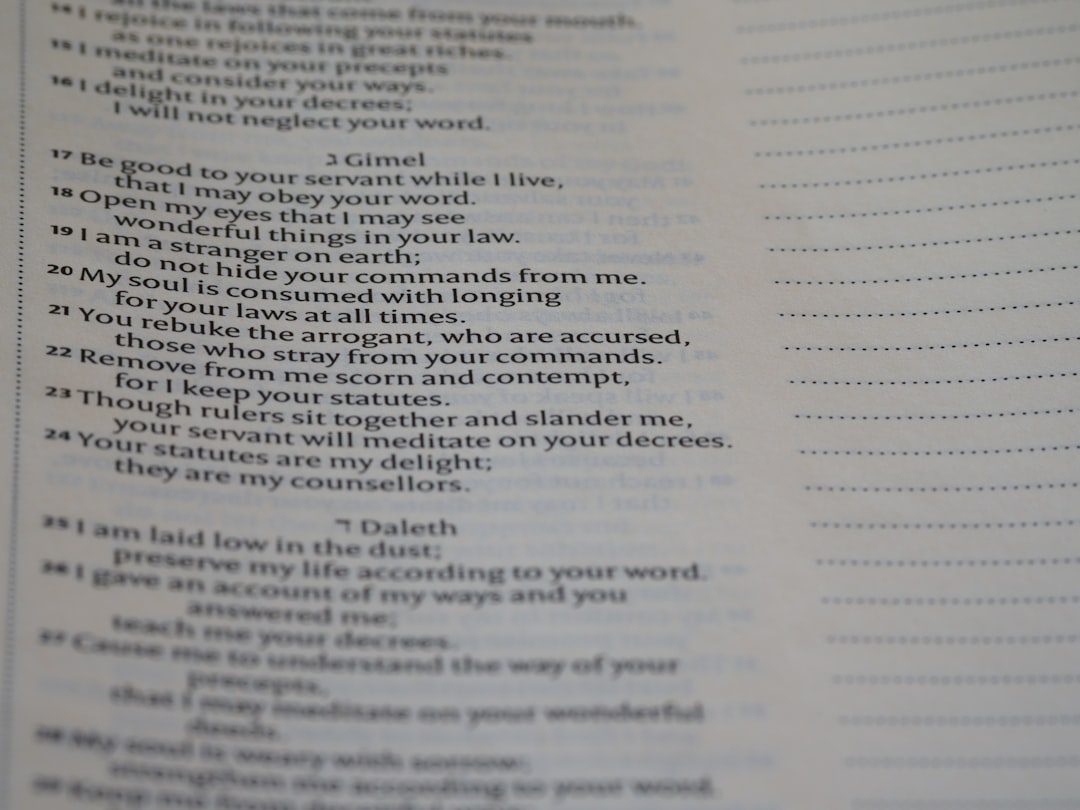 all the laws that come from your mouth.
14 I rejoice in following your statutes
as one rejoices in great riches.
15 I meditate on your precepts
and consider your ways.
16 I delight in your decrees;
I will not neglect your word.
ג Gimel
17 Be good to your servant while I live,
that I may obey your word.
18 Open my eyes that I may see
wonderful things in your law.
19 I am a stranger on earth;
do not hide your commands from me.
20 My soul is consumed with longing
for your laws at all times.
21 You rebuke the arrogant, who are accursed,
those who stray from your commands.
22 Remove from me scorn and contempt,
for I keep your statutes.
23 Though rulers sit together and slander me,
your servant will meditate on your decrees.
24 Your statutes are my delight;
they are my counsellors.
ד Daleth
25 I am laid low in the dust;
preserve my life according to your word.
26 I gave an account of my ways and you
answered me;
teach me your decrees.
27 Cause me to understand the way of your
precepts,
that I may meditate on your wonderful
deeds.
28 My soul is weary with sorrow;
strengthen me according to your word.